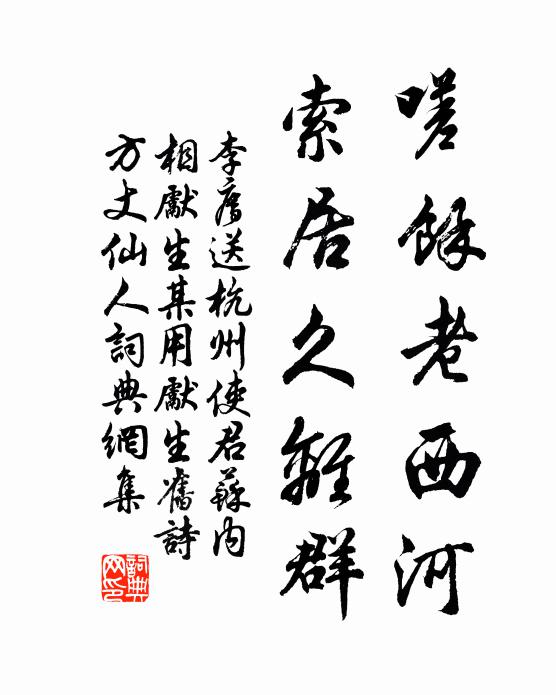 嗟餘老西河
索居久離群
李廌送杭州使君蘇內
相獻生某用獻生舊詩
方丈仙人詞典網集
詞典
网印